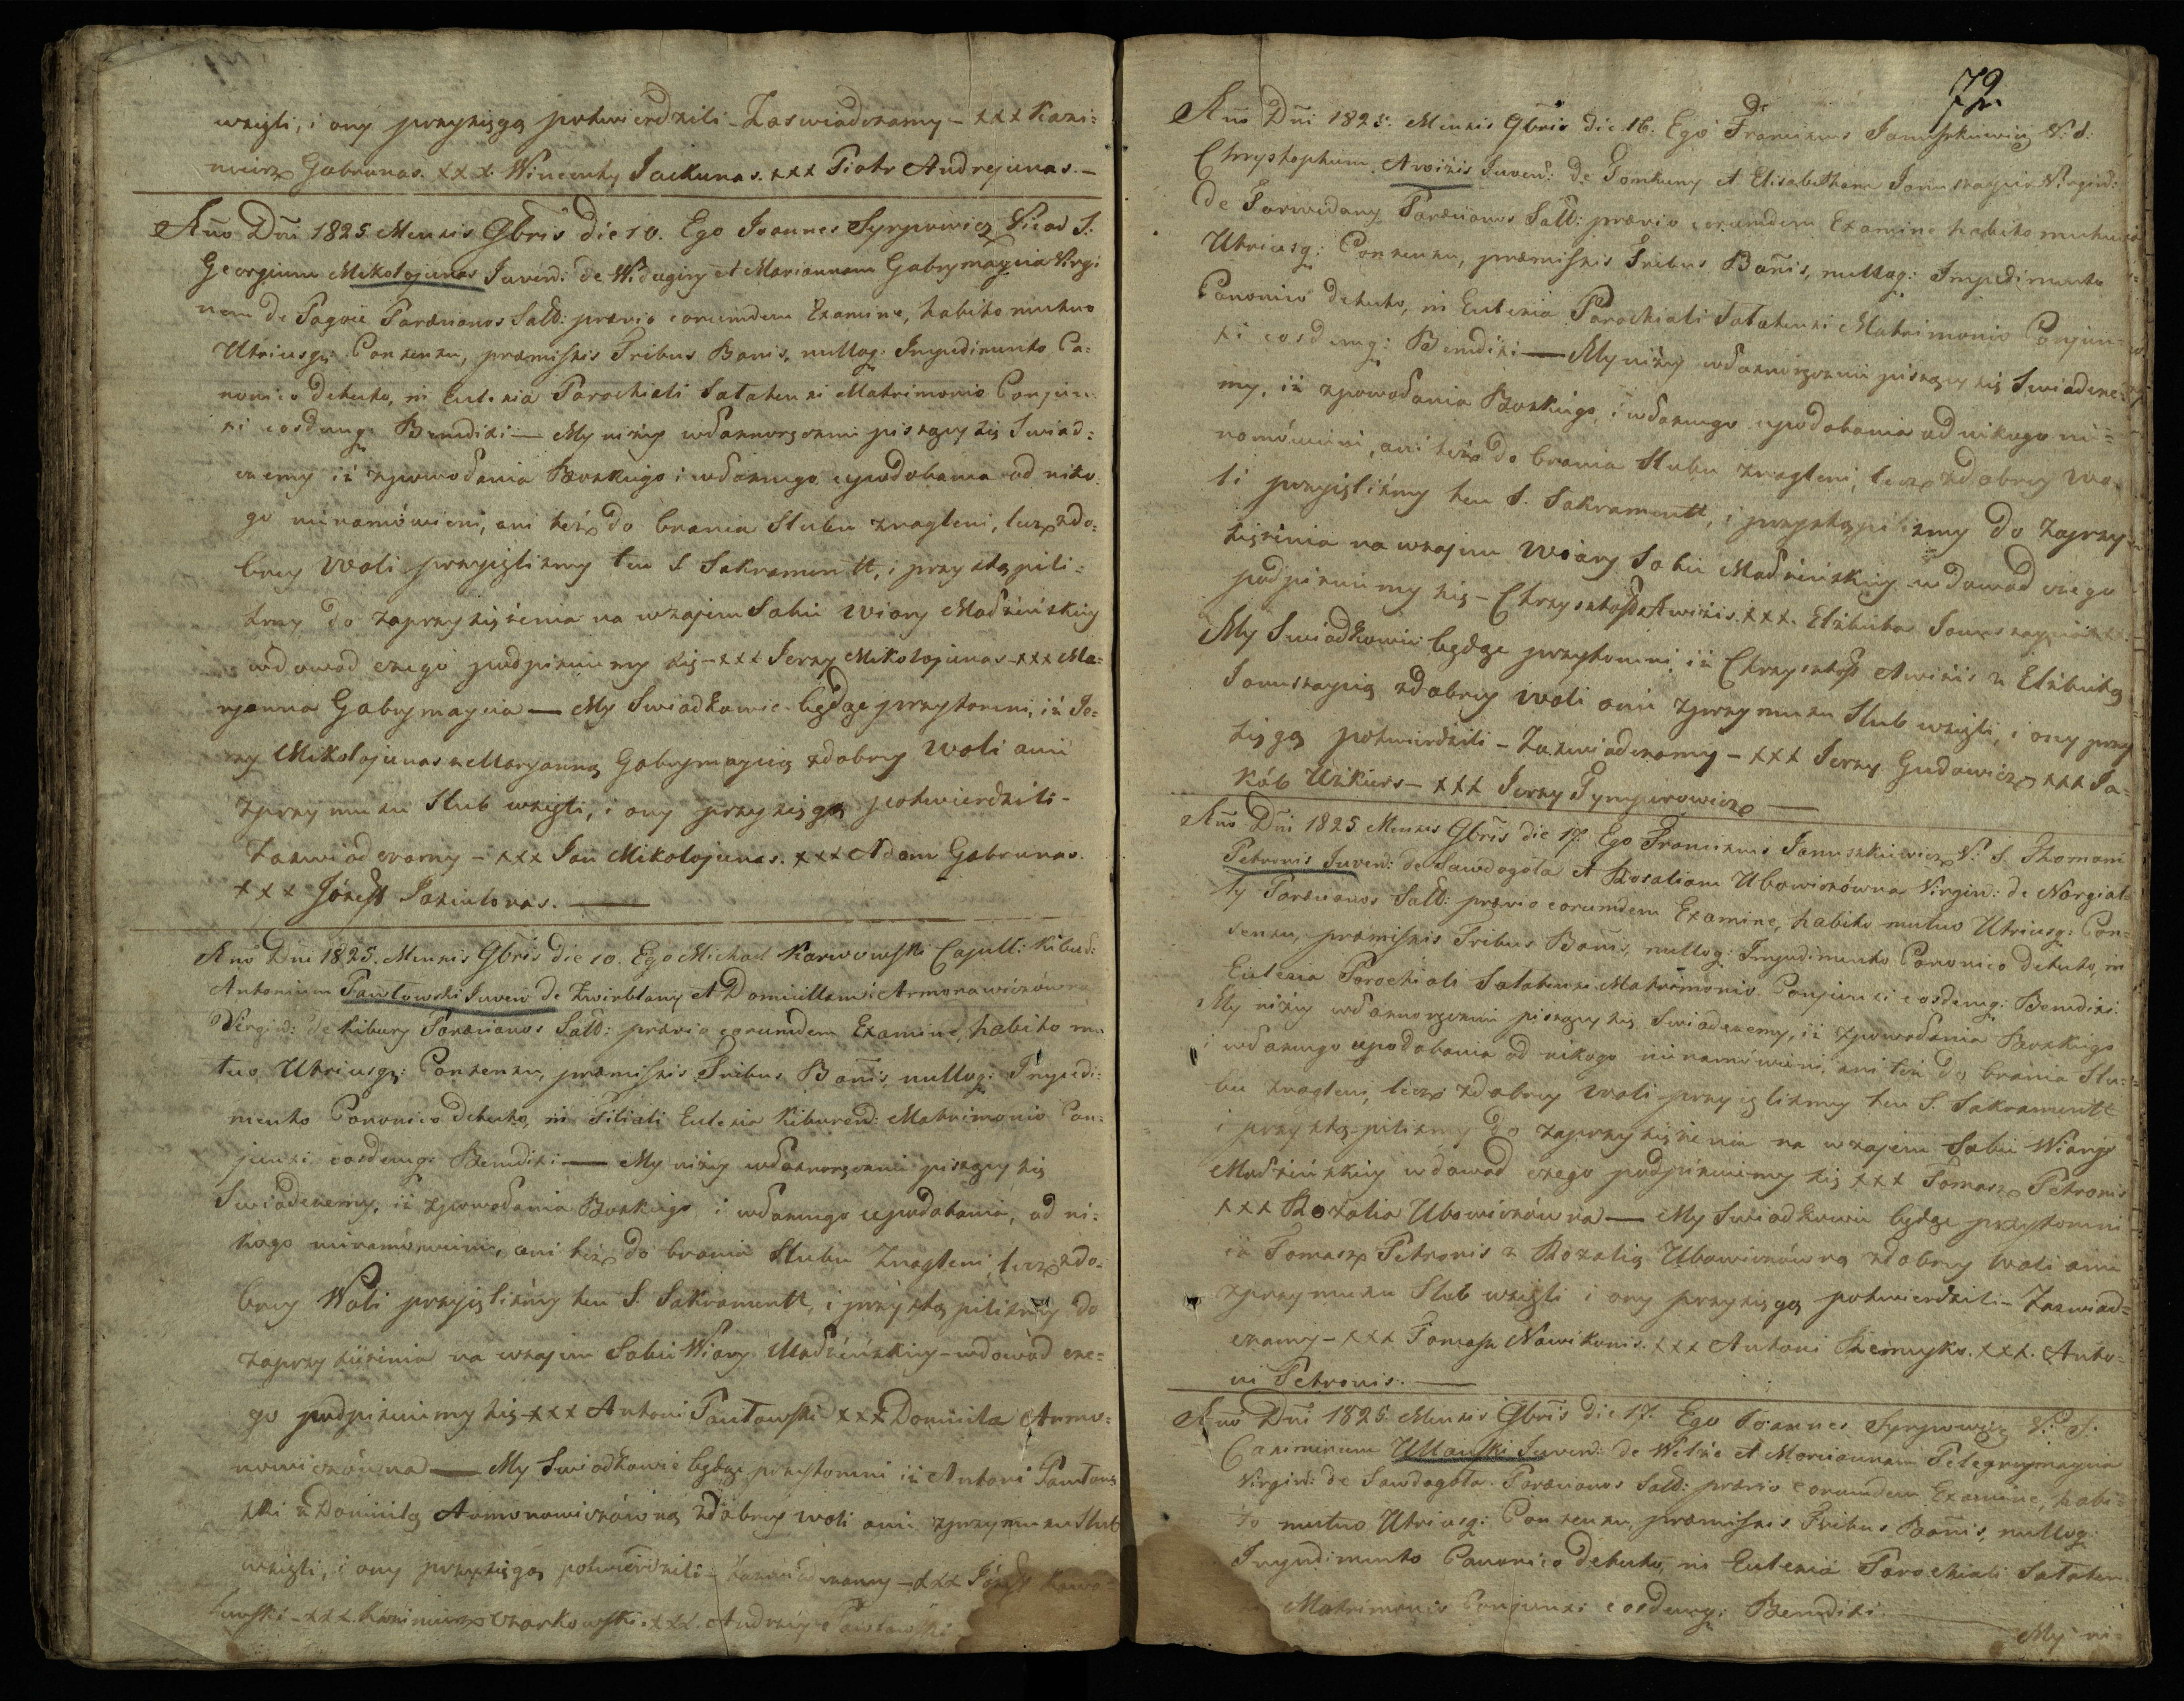 wzięli, i ony przysięgą potwierdzili – Zaswiadczamy – xxx Kazi:
mierz Gabrunas. xxx Wincenty Jackunas. xxx Piotr Andrejunas. –
Año Dñi 1825 Mensis 9bris die 10. Ego Joannes Syrpowicz Vicad S.
Georgium Mikołojunas Juven: de Widugiry et Mariannam Gabrymaycia Virgi
nem de Pagoie Paræcianos Sald: prævio eorumdem Examine, habito mutuo
Utriusq: Consensu, præmissis Tribus Banis, nulloq: Impedimento Ca:
nonico detecto, in Ecclesia Parochiali Satatensi Matrimonio Conjun:
xi eosdemq: Benedixi — My niżey własnoręcznie piszący się Swiad:
czemy iż zpowodania Boskiego i własnego upodobania od niko
go nienamówieni, ani też do brania Slubu znagleni, lecz zdo:
brey woli przyięlismy ten S. Sakramentt, i przystąpili:
smy do zaprzysiężenia na wzajem Sobie Wiary Małżeńskiey
wdowod czego podpisuiemy się – xxx Jerzy Mikołojunas – xxx Ma:
ryanna Gabrymaycia — My Swiadkowie będąc przytomni, iż Je:
rzy Mikołojunas z Maryanną Gabrymaycią zdobrey Woli anie
zprzymusu Slub wzięli, i ony przysięgą potwierdzili –
Zaswiadczamy – xxx Jan Mikołojunas. xxx Adam Gabrunas.
xxx Józeff Jasiulonas. —
Año Dñi 1825. Mensis 9bris die 10. Ego Michael Karwowski Capell: Kibur:
Antonium Pawłowski Juven de Zwirblany et Domicillam Armonawiczówna
Virgin: de Kibury Paræcianos Sald: prævio eorumdem Examine, habito mu
tuo Utriusq: Consensu, præmissis Tribus Banis, nulloq: Impedi:
mento Canonico detecto, in Filiali Ecclesia Kiburen: Matrimonio Con:
junxi eosdemq: Benedixi — My niżey własnoręcznie piszący się
Swiadczemy, iż zpowodania Boskiego i własnego upodobania, od ni:
kogo nienamówieni, ani też do brania Slubu znagleni, lecz zdo:
brey Woli przyięlismy ten S. Sakramentt, i przystąpilismy do
zaprzysiężenia na wzajem Sobie Wiary Małżeńskiey – wdowod cze:
go podpisuiemy się – xxx Antoni Pawłowski xxx Domicila Armo:
nowiczówna — My Swiadkowie będąc przytomni iż Antoni Pawłow
ski z Domicilą Armonowiczówną zdobrey woli anie zprzymusu Slub
wzięli, i ony przysięgą potwierdzili – Zaswiadczamy – xxx Józeff
xxx Kazimierz Czarkowski. xxx. Andrzey Pawłowski
72
Año Dñi 1825. Mensis 9bris die 16. Ego Franciscus Januszkiewicz V: S:
Chrystophum Awizis Juven: de Gomkuny et Elisabetham Janu Virgin:
de Parwidany Paræcianos Sald: prævio eorumdem Examine habito mutuo
Utriusq: Consensu, præmissis Tribus Banis, nulloq: Impedimento
Canonico detecto, in Ecclesia Parochiali Satatensi Matrimonio Conjun:
xi eosdemq: Benedixi — My niżey własnoręcznie piszący się Swiadcze:
my, iż zpowodania Boskiego i własnego upodobania od nikogo nie:
namówieni, ani też do brania Slubu znagleni, lecz zdobrey wo:
li przyięlismy ten S. Sakramentt, i przystąpilismy do zaprzy:
siężenia na wzajem Wiary Sobie Małżeńskiey wdowod czego
podpisuiemy się – Chrysztoff Awizis. xxx. Elżbieta
My Swiadkowie będąc przytomni iż Chrysztoff Awizis z Elżbietą
zdobrey woli anie zprzymusu Slub wzięli, i ony przy
sięgą potwierdzili – Zaswiadczamy – xxx Jerzy Gudowicz xxx Ja:
kób Uzkurs – xxx Jerzy Tympirowicz —
Año Dñi 1825. Mensis 9bris die 17. Ego Franciscus Januszkiewicz V: S. Thomam
Petronis Juven: de Sawdagoła et Rosaliam Ubowiczówna Virgin: de Norgiał:
ły Paræcianos Sald: prævio eorumdem Examine, habito mutuo Utriusq: Con:
sensu, præmissis Tribus Banis, nulloq: Impedimento Canonico detecto, in
Ecclesia Parochiali Satatensi Matrimonio Conjunxi eosdemq: Benedixi.
My niżey własnoręcznie piszący się Swiadczemy, iż zpowodania Boskiego
i własnego upodobania od nikogo nienamówieni, ani też do brania Slu:
bu znagleni, lecz zdobrey woli przyięlismy ten S. Sakramentt
i przystąpilismy do zaprzysiężenia na wzajem Sobie Wiary
Małżeńskiey wdowod czego podpisuiemy się xxx Tomasz Petronis
xxx Rozalia Ubowiczówna — My Swiadkowie będąc przytomni
iż Tomasz Petronis z Rozalią Ubowiczówną zdobrey woli anie
zprzymusu Slub wzięli i ony przysięgą potwierdzili – Zaswiad:
czamy – xxx Tomasz Nowikonis. xxx Antoni xxx. Anto:
ni Petronis. —
Año Dñi 1825. Mensis 9bris die 17. Ego Joannes Syrpowicz V: S.
Casimirum Ullanski Juven: de Welże et Mariannam Pelegrymaycia
Virgin: de Sawdagoła. Paræcianos Sald: prævio eorumdem Examine, habi:
to mutuo Utriusq: Consensu, præmissis Tribus Banis, nulloq:
Impedimento Canonico detecto, in Ecclesia Parochiali Sataten
Matrimonio Conjunxi eosdemq: Benedixi. —
My ni: